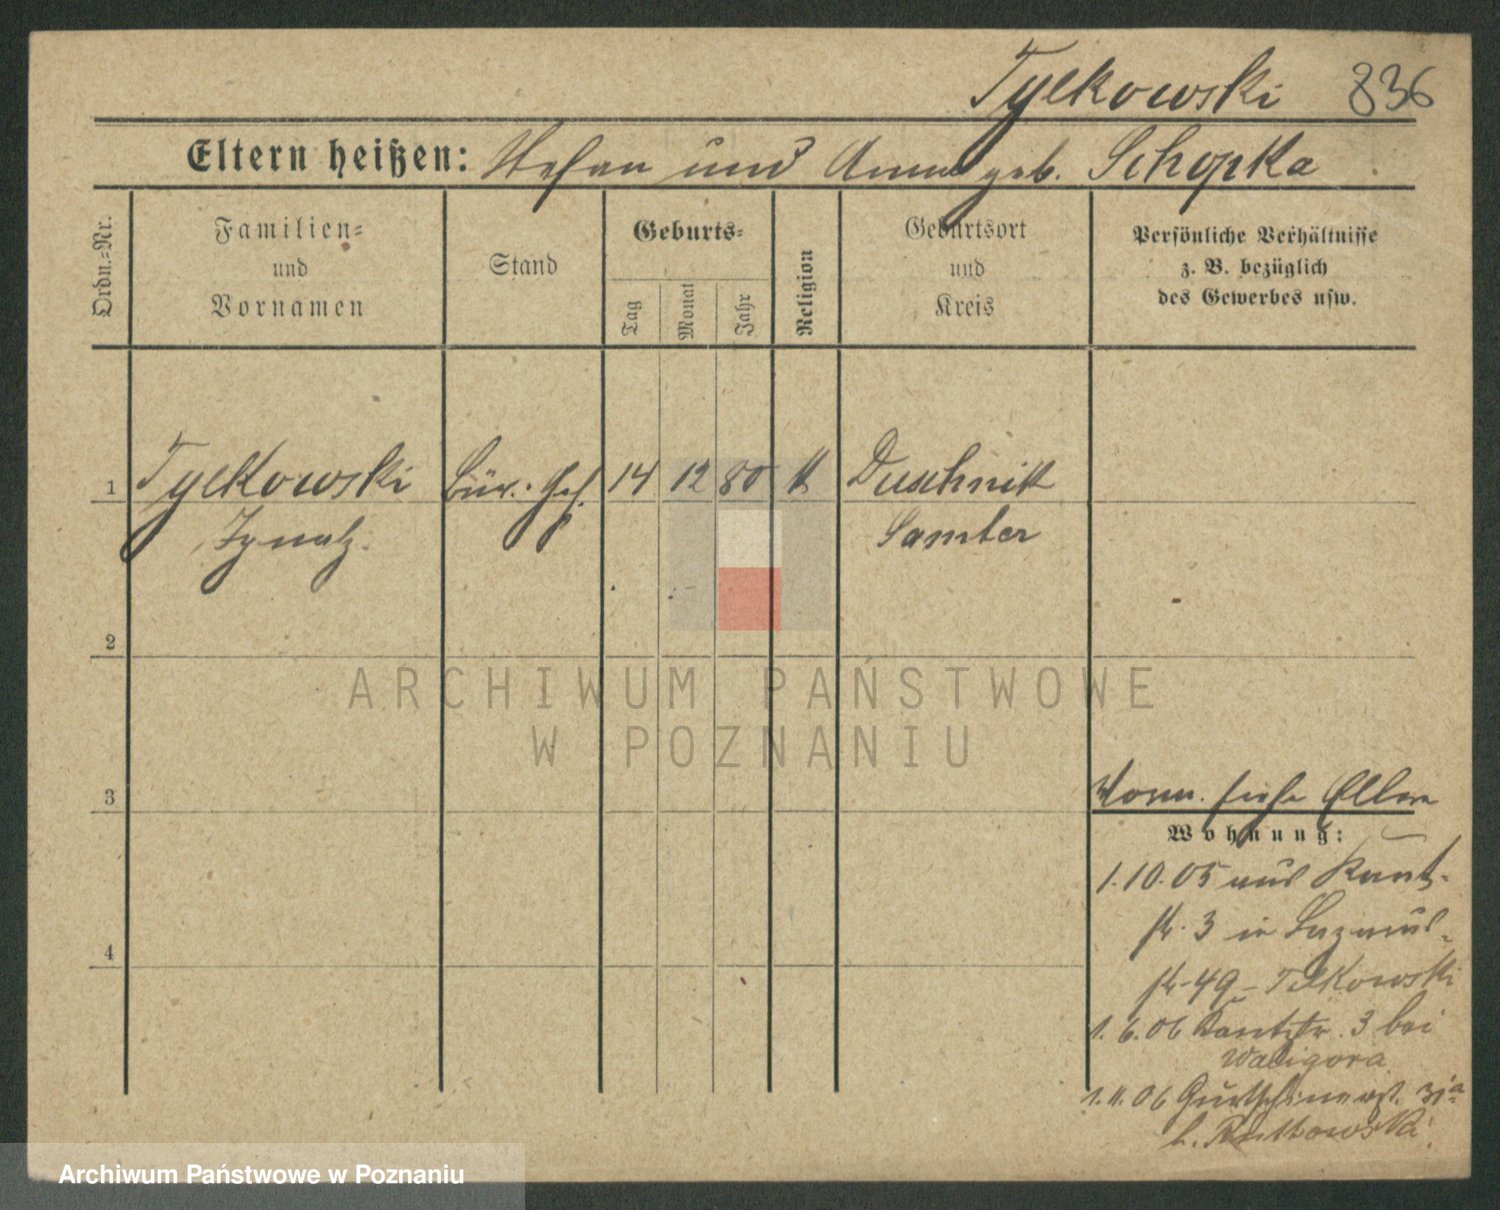 Tylkowski 836
Eltern heißen: Stefan und Anna geb. Schopka
Ordn.-Nr.
Familien-
und
Vornamen
Stand
Geburts-
Tag
Monat
Jahr
Religion
Geburtsort
und
Kreis
Persönliche Verhältnisse
z. B. bezüglich
des Gewerbes usw.
1 Tylkowski Bür. Geh. 14 12 80 K Duschnik
Ignatz Samter
2
ARCHIWUM PAŃSTWOWE
W POZNANIU
3 Vorm. siehe Eltern
Wohnung:
1.10.05 aus Kant-
str. 3 in
4 str. 49 - Tylkowski
1.6.06 Kantstr. 3 bei
Waligora
1.11.06 31a
b.
Archiwum Państwowe w Poznaniu